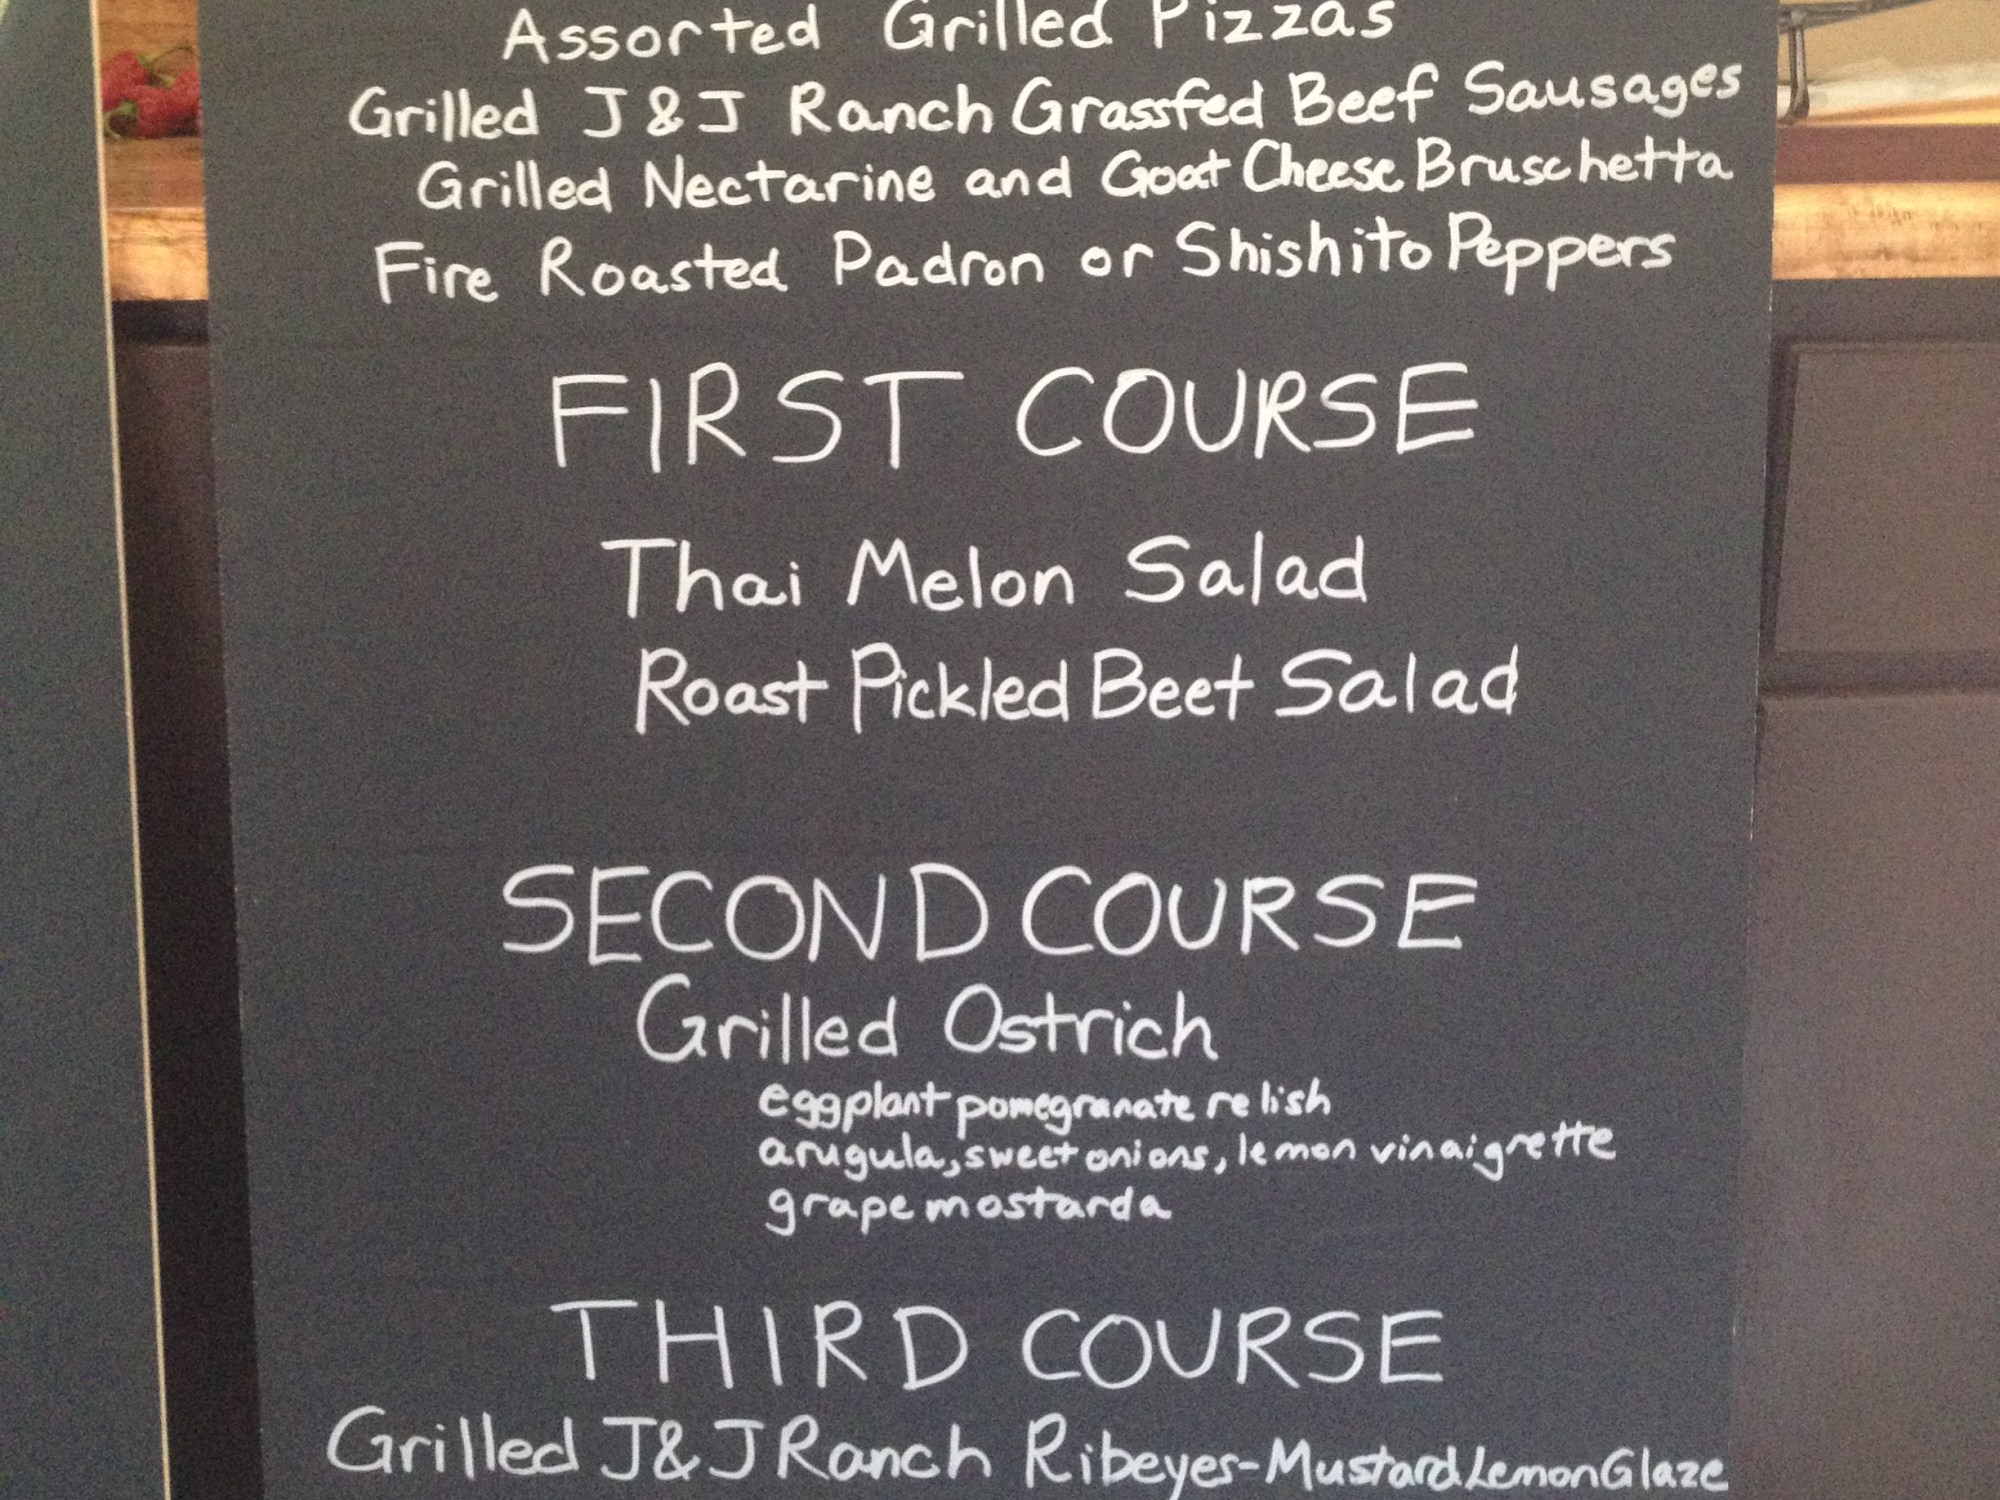 Assorted Grilled Pizzas
Grilled J&J Ranch Grassfed Beef Sausages
Grilled Nectarine and Goat Cheese Bruschetta
Fire Roasted Padron or Shishito Peppers
FIRST COURSE
Thai Melon Salad
Roast Pickled Beet Salad
SECOND COURSE
Grilled Ostrich
eggplant pomegranate relish
arugula, sweet onions, lemon vinaigrette
grape mostarda
THIRD COURSE
Grilled J&J Ranch Ribeyes-Mustard Lemon Glaze